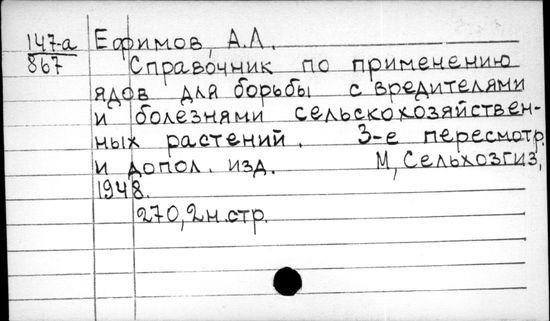 147-а
867
Ефимов, А.Л.
Справочник по применению
ядов для борьбы с вредителями
и болезнями сельскохозяйствен-
ных растений. 3-е пересмотр.
и допол. изд. М, Сельхозгиз,
1948.
270, 2 н. стр.